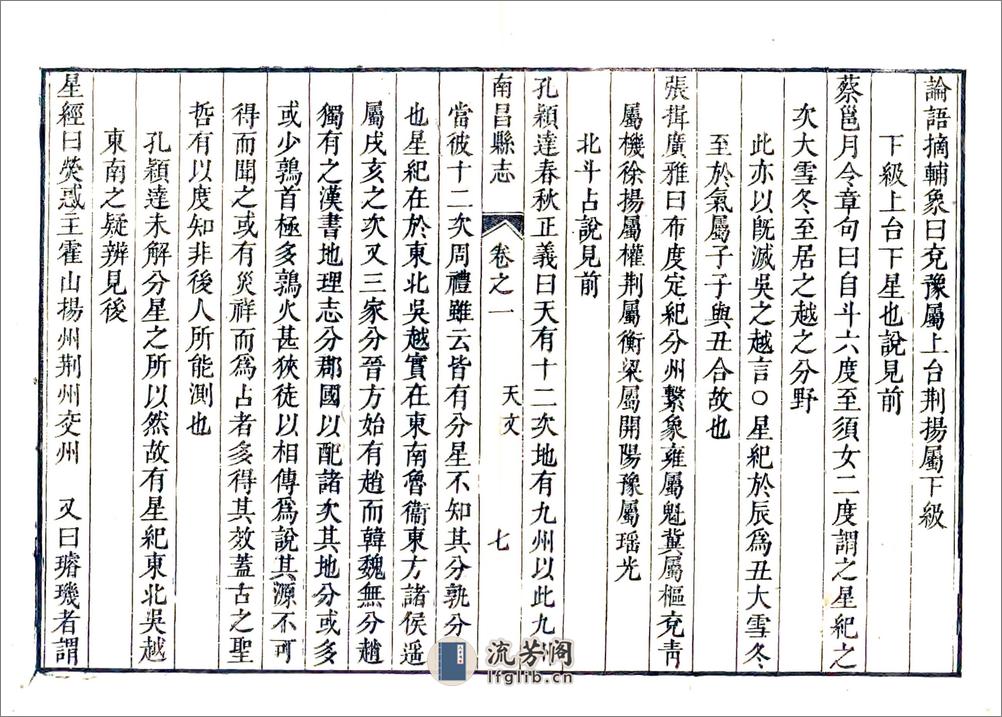 論語摘輔象曰兗豫屬上台荆揚屬下級
下級上台下星也說見前
蔡邕月令章句曰自斗六度至須女二度謂之星紀之
次大雪冬至居之越之分野
此亦以旣滅吳之越言○星紀於辰爲丑大雪冬
至於氣屬子子與丑合故也
張揖廣雅曰布度定紀分州繫象雍屬魁冀屬樞兗靑
屬機徐揚屬權荆屬衡梁屬開陽豫屬瑶光
北斗占說見前
孔穎達春秋正義曰天有十二次地有九州以此九
南昌縣志 卷之一 天文 七
當彼十二次周禮雖云皆有分星不知其分孰分
也星紀在於東北吳越實在東南魯衞東方諸侯遥
屬戌亥之次又三家分晉方始有趙而韓魏無分趙
獨有之漢書地理志分郡國以配諸次其地分或多
或少鶉首極多鶉火甚狹徒以相傳爲說其源不可
得而聞之或有災祥而爲占者多得其效蓋古之聖
哲有以度知非後人所能測也
孔穎達未解分星之所以然故有星紀東北吳越
東南之疑辨見後
星經曰熒惑主霍山揚州荆州交州 又曰璿璣者謂
流芳阁
lfglib.cn